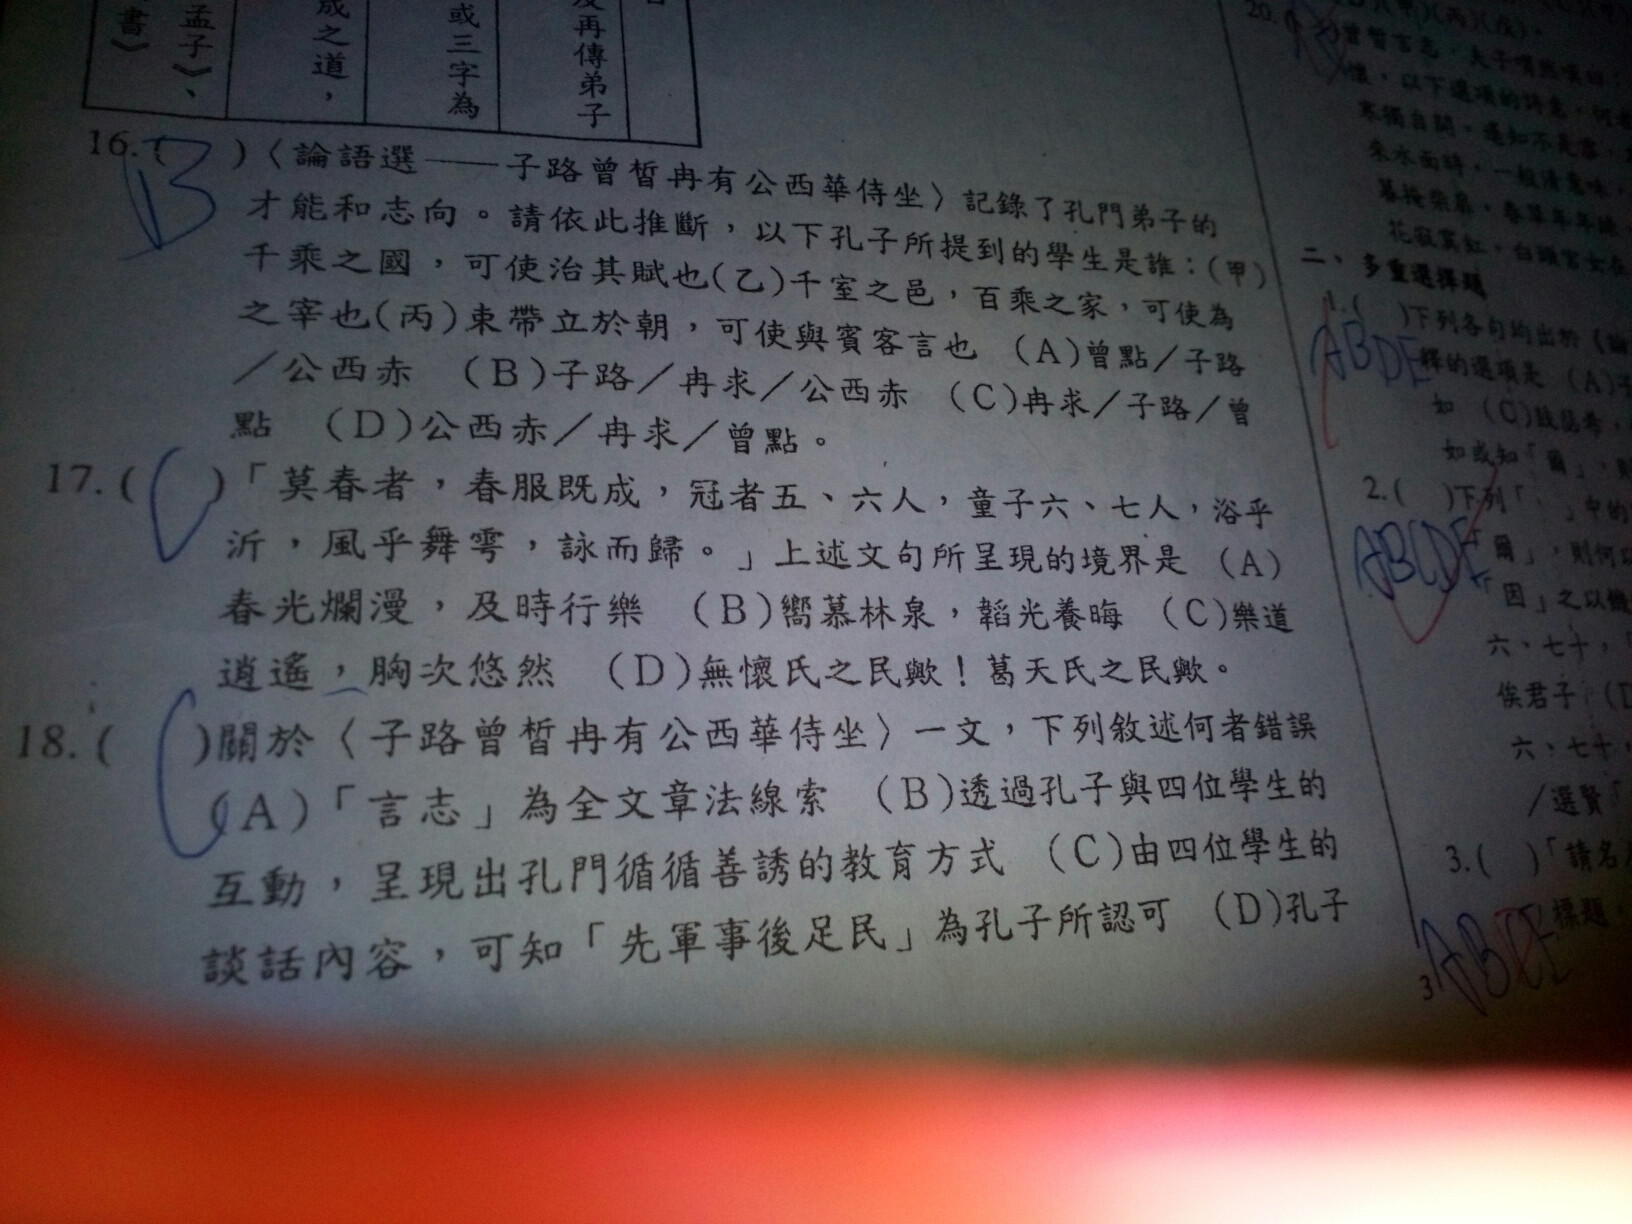 書》
孟子》、
成之道，
或三字為
及再傳弟子
16.( B )〈論語選——子路曾皙冉有公西華侍坐〉記錄了孔門弟子的
才能和志向。請依此推斷，以下孔子所提到的學生是誰：(甲)
千乘之國，可使治其賦也(乙)千室之邑，百乘之家，可使為
之宰也(丙)束帶立於朝，可使與賓客言也 (A)曾點／子路
／公西赤 (B)子路／冉求／公西赤 (C)冉求／子路／曾
點 (D)公西赤／冉求／曾點。
17.( C )「莫春者，春服既成，冠者五、六人，童子六、七人，浴乎
沂，風乎舞雩，詠而歸。」上述文句所呈現的境界是 (A)
春光爛漫，及時行樂 (B)嚮慕林泉，韜光養晦 (C)樂道
逍遙，胸次悠然 (D)無懷氏之民歟！葛天氏之民歟。
18.( C )關於〈子路曾皙冉有公西華侍坐〉一文，下列敘述何者錯誤
(A)「言志」為全文章法線索 (B)透過孔子與四位學生的
互動，呈現出孔門循循善誘的教育方式 (C)由四位學生的
談話內容，可知「先軍事後足民」為孔子所認可 (D)孔子
20.
曾皙言志，夫子喟然嘆曰：
懷，以下選項的詩意，何
來水面時，一般清意味，
二、多重選擇題
1.( ABDE )下列各句均出於《論
釋的選項是 (A)
如 (C)
如或知「爾」，則
2.( ABCDE )下列「 」中的
「爾」，則何以
「因」之以饑
六、七十，
俟君子 (D
六、七十，
／選賢「
3.( ABCE )「請名
標題，
3